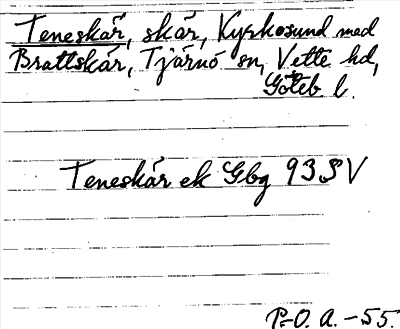 Teneskär, skär, Kyrkosund med
Brattskär, Tjärnö sn, Vette hd,
Göteb l.
Teneskär ek Gbg 93 SV
P.-O. A. -55.